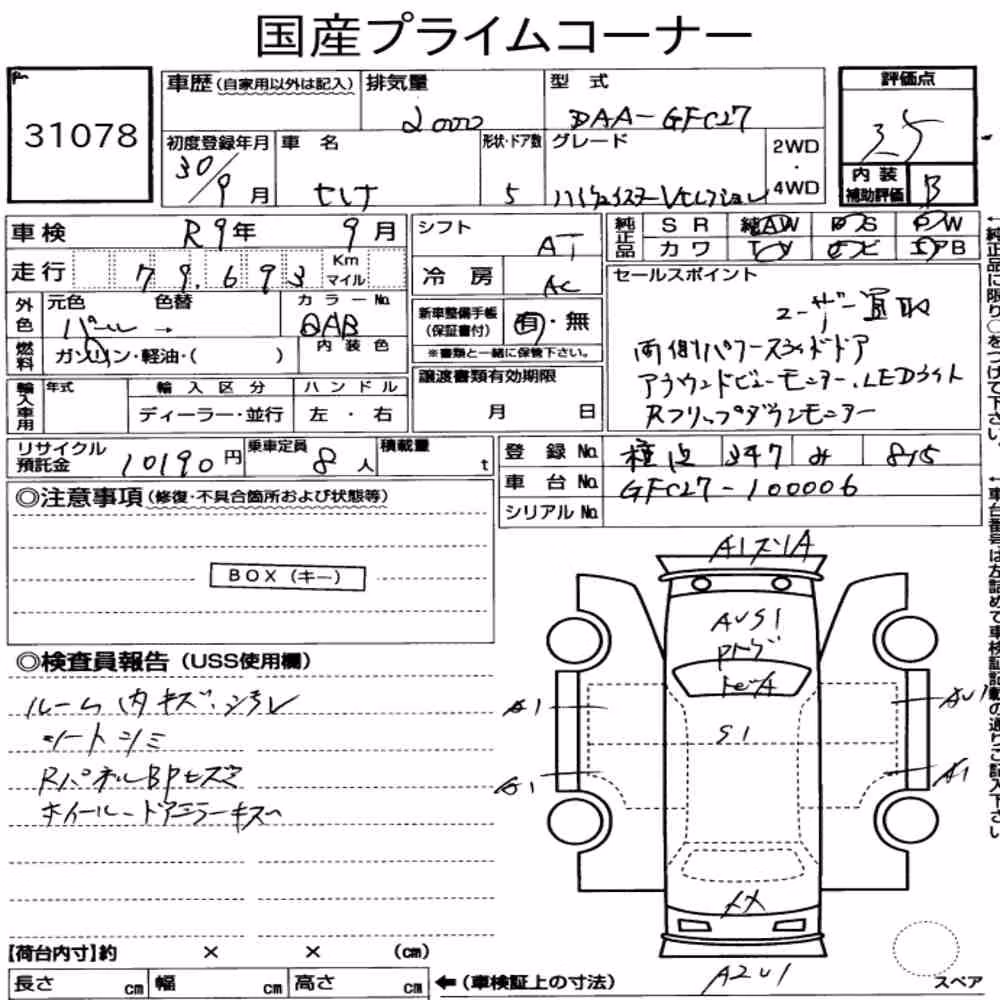 国産プライムコーナー
31078
車歴(自家用以外は記入) 排気量 型式
2000 DAA-GFC27
初度登録年月 車名 形状・ドア数 グレード 2WD・4WD
30/9月 セレナ 5 ハイウェイスターVセレクション
評価点
3.5
内装補助評価 B
車検 R9年 9月
シフト AT
純正品 SR 純AW PS PW
カワ TV ナビ エアB
走行 79,693 Km マイル
冷房 AC
外色 元色 色替 カラーNo.
パール → QAB
新車整備手帳(保証書付) 有・無
※書類と一緒に保管下さい。
燃料 ガソリン・軽油・( ) 内装色
セールスポイント
ユーザー買取
両側パワースライドドア
アラウンドビューモニター.LEDライト
Rフリップダウンモニター
輸入車用 年式 輸入区分 ハンドル
ディーラー・並行 左・右
譲渡書類有効期限
月 日
リサイクル預託金 10190円 乗車定員 8人 積載量 t
登録No. 347 み 815
車台No. GFC27-100006
シリアルNo.
◎注意事項(修復・不具合箇所および状態等)
BOX(キー)
◎検査員報告(USS使用欄)
ルーム内キズ.汚レ
シートシミ
RパネルBPヒズミ
ホイールードアミラーキズ
A1スリA
AUS1
S1
A1
AU1
A1
A1
XX
A2U1
【荷台内寸】約 × × (cm)
長さ cm 幅 cm 高さ cm
←(車検証上の寸法)
スペア
←純正品に限り○をつけて下さい。
←車台番号は左詰めで車検証記載の通りご記入下さい